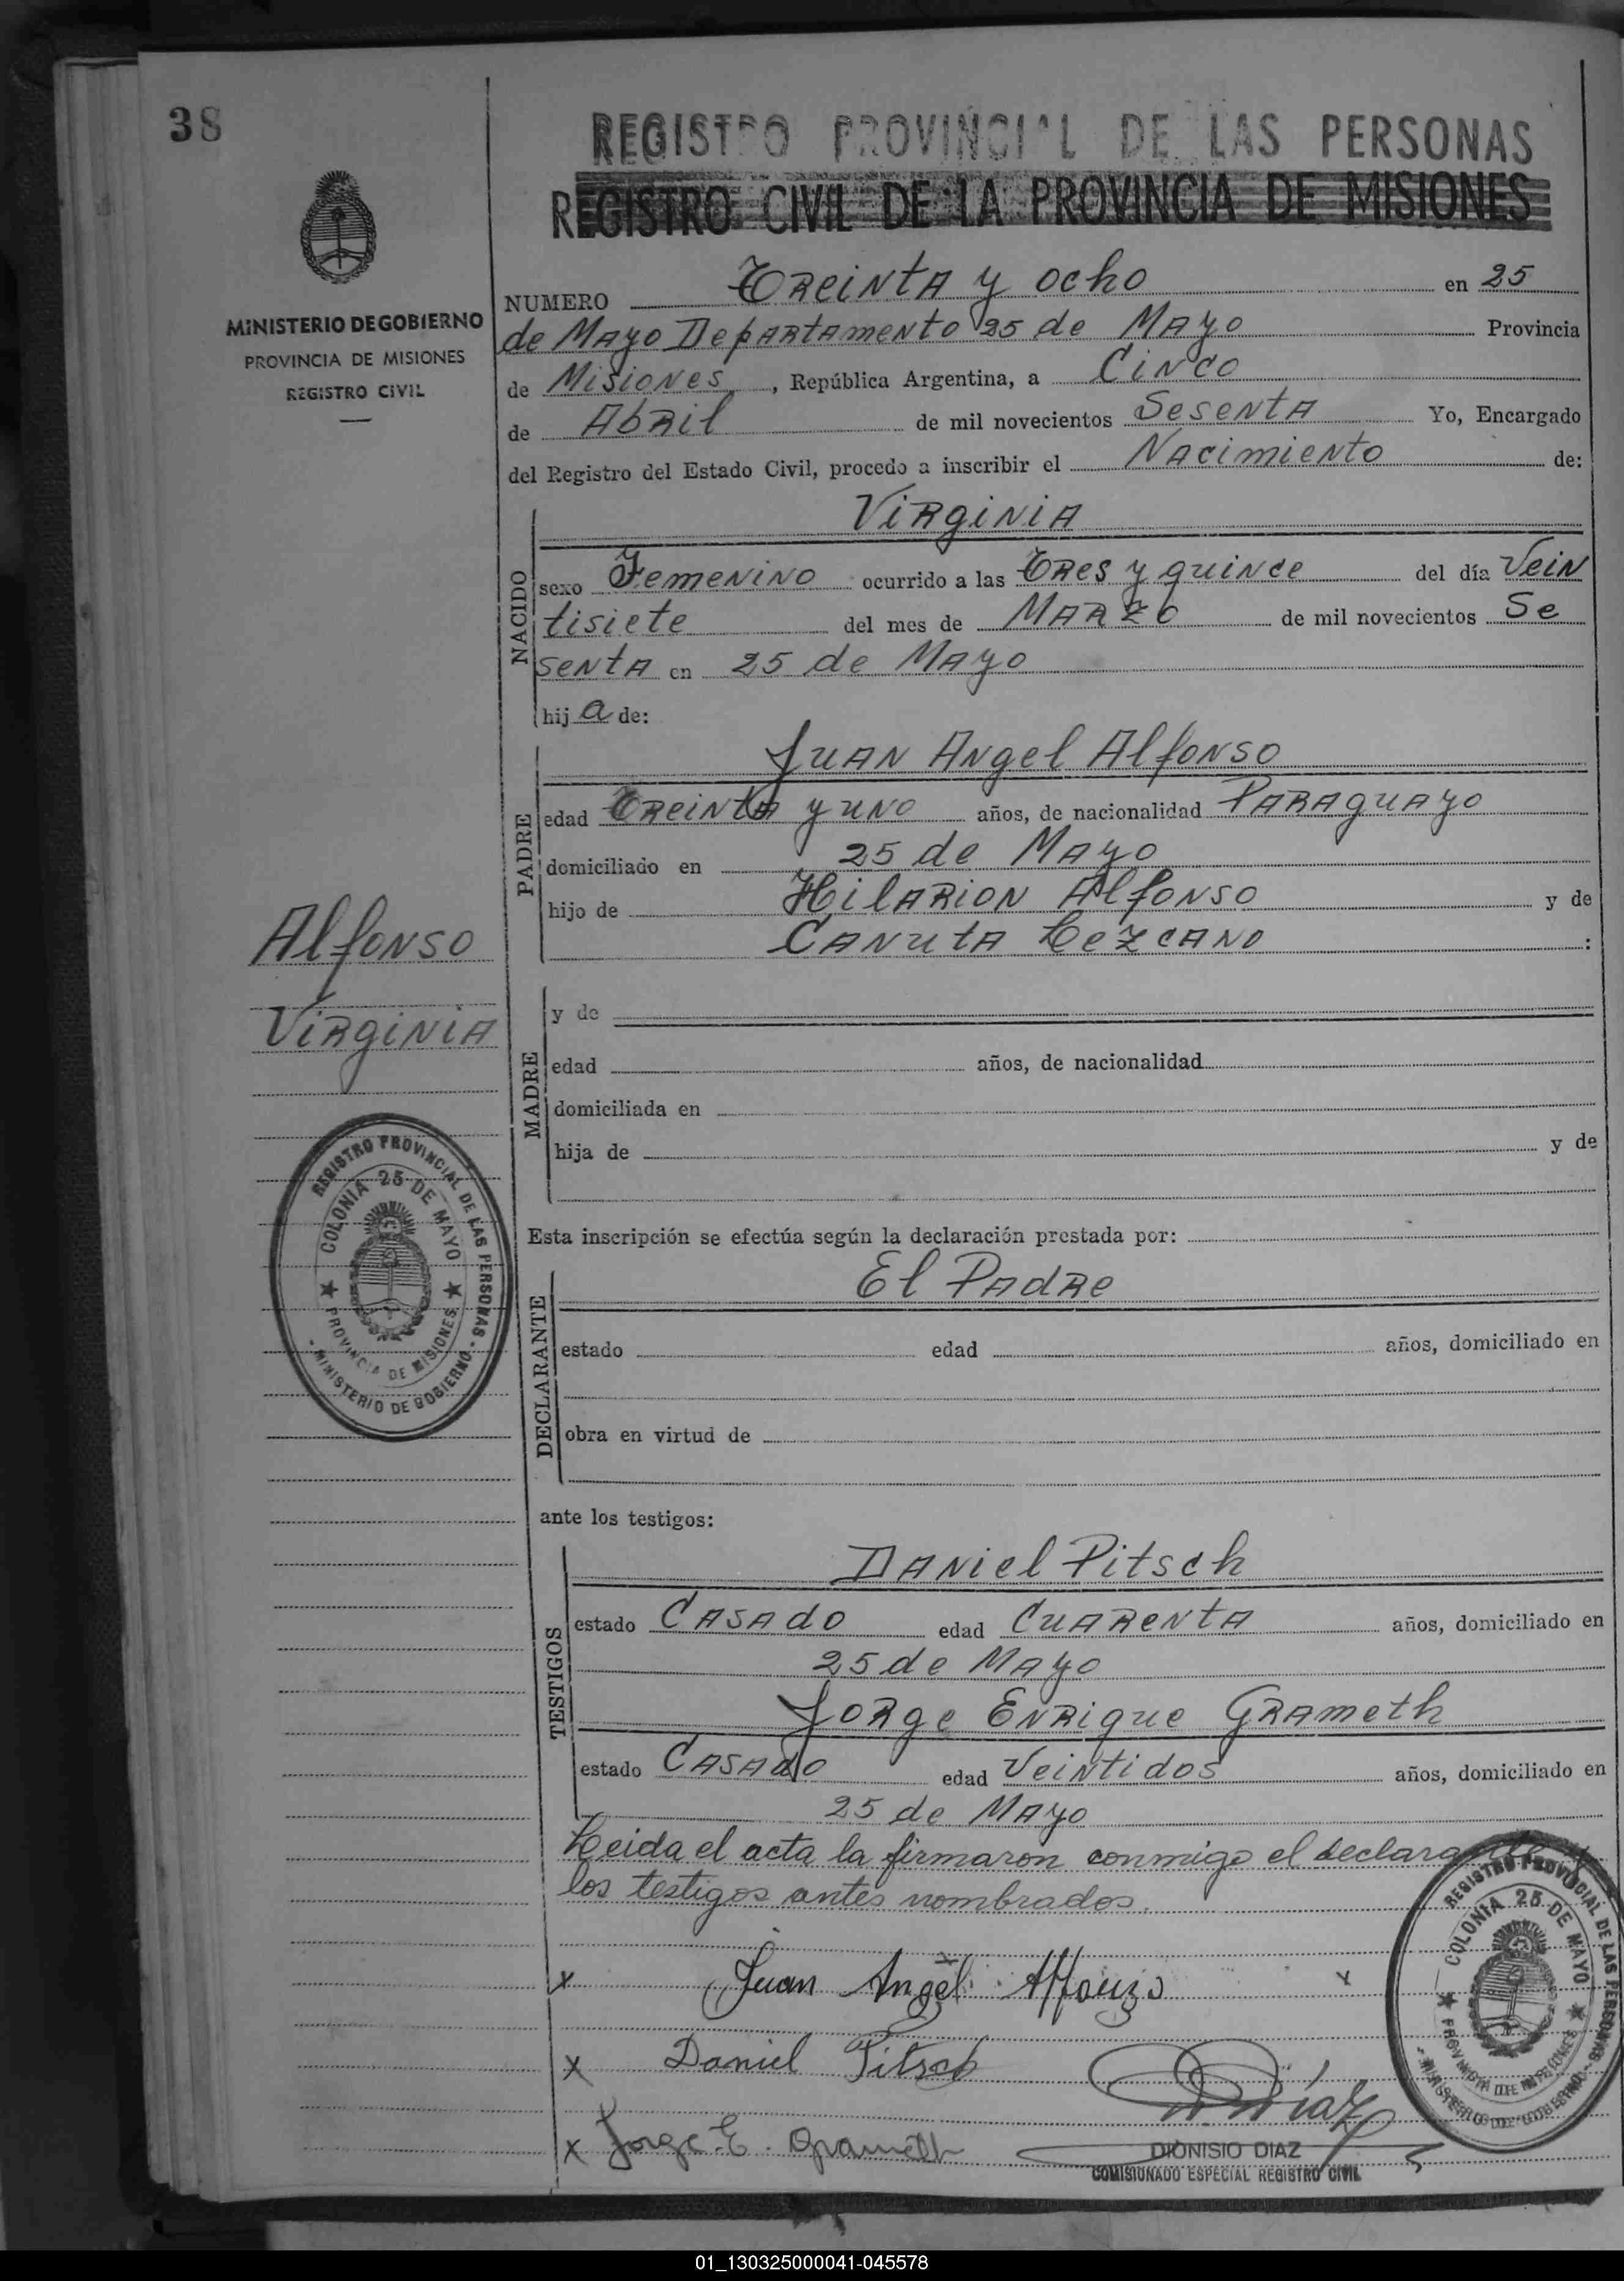 38
REGISTRO PROVINCIAL DE LAS PERSONAS
REGISTRO CIVIL DE LA PROVINCIA DE MISIONES
MINISTERIO DE GOBIERNO
PROVINCIA DE MISIONES
REGISTRO CIVIL
NUMERO Treinta y ocho en 25
de Mayo Departamento 25 de Mayo Provincia
de Misiones, República Argentina, a Cinco
de Abril de mil novecientos Sesenta Yo, Encargado
del Registro del Estado Civil, procedo a inscribir el Nacimiento de:
NACIDO
Virginia
sexo Femenino ocurrido a las Tres y quince del día Vein
tisiete del mes de Marzo de mil novecientos Se
senta en 25 de Mayo
hij a de:
PADRE
Juan Angel Alfonso
edad Treinta y uno años, de nacionalidad Paraguayo
domiciliado en 25 de Mayo
hijo de Hilarion Alfonso y de
Canuta Lezcano :
Alfonso
Virginia
MADRE
y de
edad años, de nacionalidad
domiciliada en
hija de y de
REGISTRO PROVINCIAL DE LAS PERSONAS
COLONIA 25 DE MAYO
PROVINCIA DE MISIONES
- MINISTERIO DE GOBIERNO -
Esta inscripción se efectúa según la declaración prestada por:
DECLARANTE
El Padre
estado edad años, domiciliado en
obra en virtud de
ante los testigos:
TESTIGOS
Daniel Pitsch
estado Casado edad Cuarenta años, domiciliado en
25 de Mayo
Jorge Enrique Grameth
estado Casado edad Veintidos años, domiciliado en
25 de Mayo
Leida el acta la firmaron conmigo el declarante y
los testigos antes nombrados.
x Juan Angel Alfonzo x
x Daniel Pitsch
D. Díaz
x Jorge E. Grameth
DIONISIO DIAZ
COMISIONADO ESPECIAL REGISTRO CIVIL
REGISTRO PROVINCIAL DE LAS PERSONAS
COLONIA 25 DE MAYO
PROVINCIA DE MISIONES
- MINISTERIO DE GOBIERNO -
01_130325000041-045578